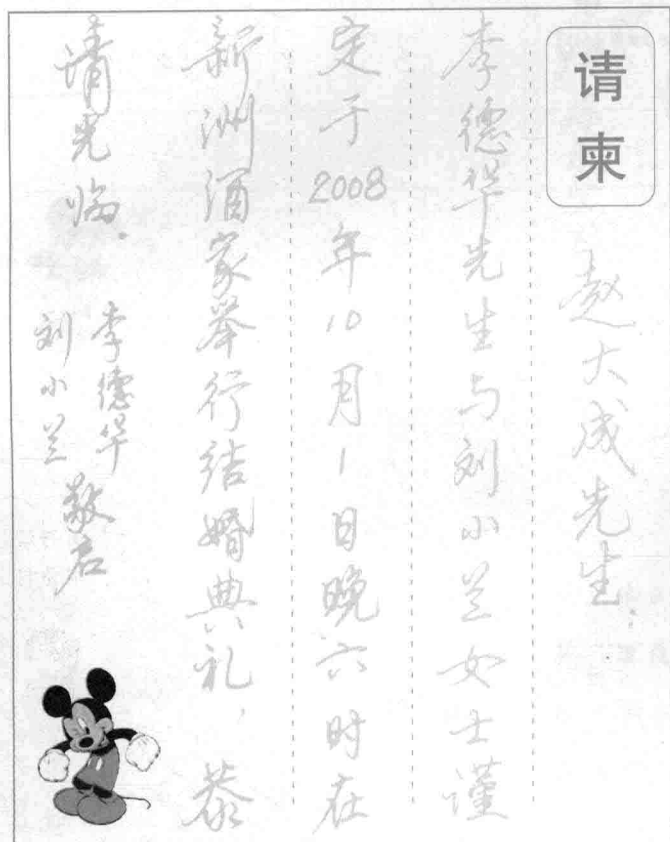 请柬
赵大成先生：
李德华先生与刘小兰女士谨
定于2008年10月1日晚六时在
新洲酒家举行结婚典礼，恭
请光临。
李德华
刘小兰
敬启